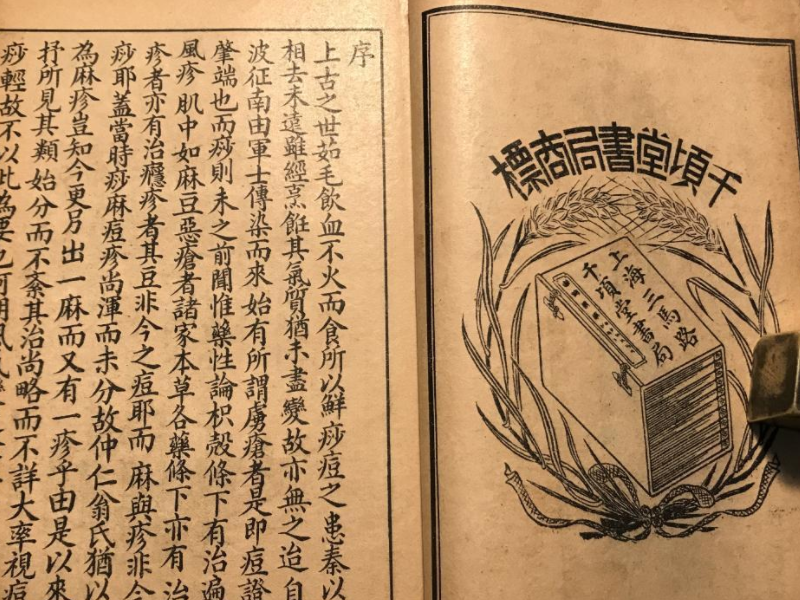 千頃堂書局商標
上海三馬路
千頃堂書局
序
上古之世茹毛飲血不火而食所以鮮痧痘之患秦以
相去未遠雖經烹飪其氣質猶未盡變故亦無之迨自
波征南由軍士傳染而來始有所謂虜瘡者是即痘證
肇端也而痧則未之前聞惟藥性論枳殼條下有治遍
風疹肌中如麻豆惡瘡者諸家本草各藥條下亦有治
疹者亦有治癮疹者其豆非今之痘耶而麻與疹非今
痧耶蓋當時痧麻痘疹尚渾而未分故仲仁翁氏猶以
為麻疹豈知今更另出一麻而又有一疹乎由是以來
抒所見其類始分而不紊其治尚略而不詳大率視痘
痧輕故不以此為要也